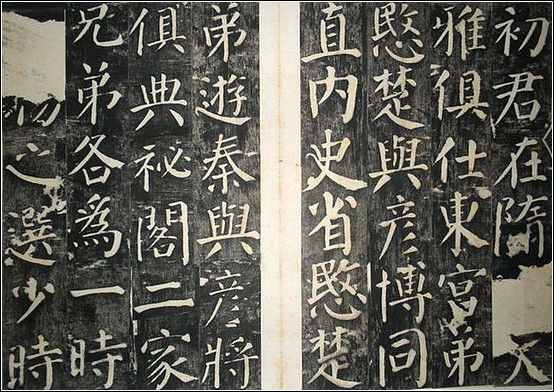 初君在隋大
雅俱仕東宮弟
愍楚與彥博同
直内史省愍楚
弟遊秦與彥將
俱典祕閣二家
兄弟各為一時
之選少時